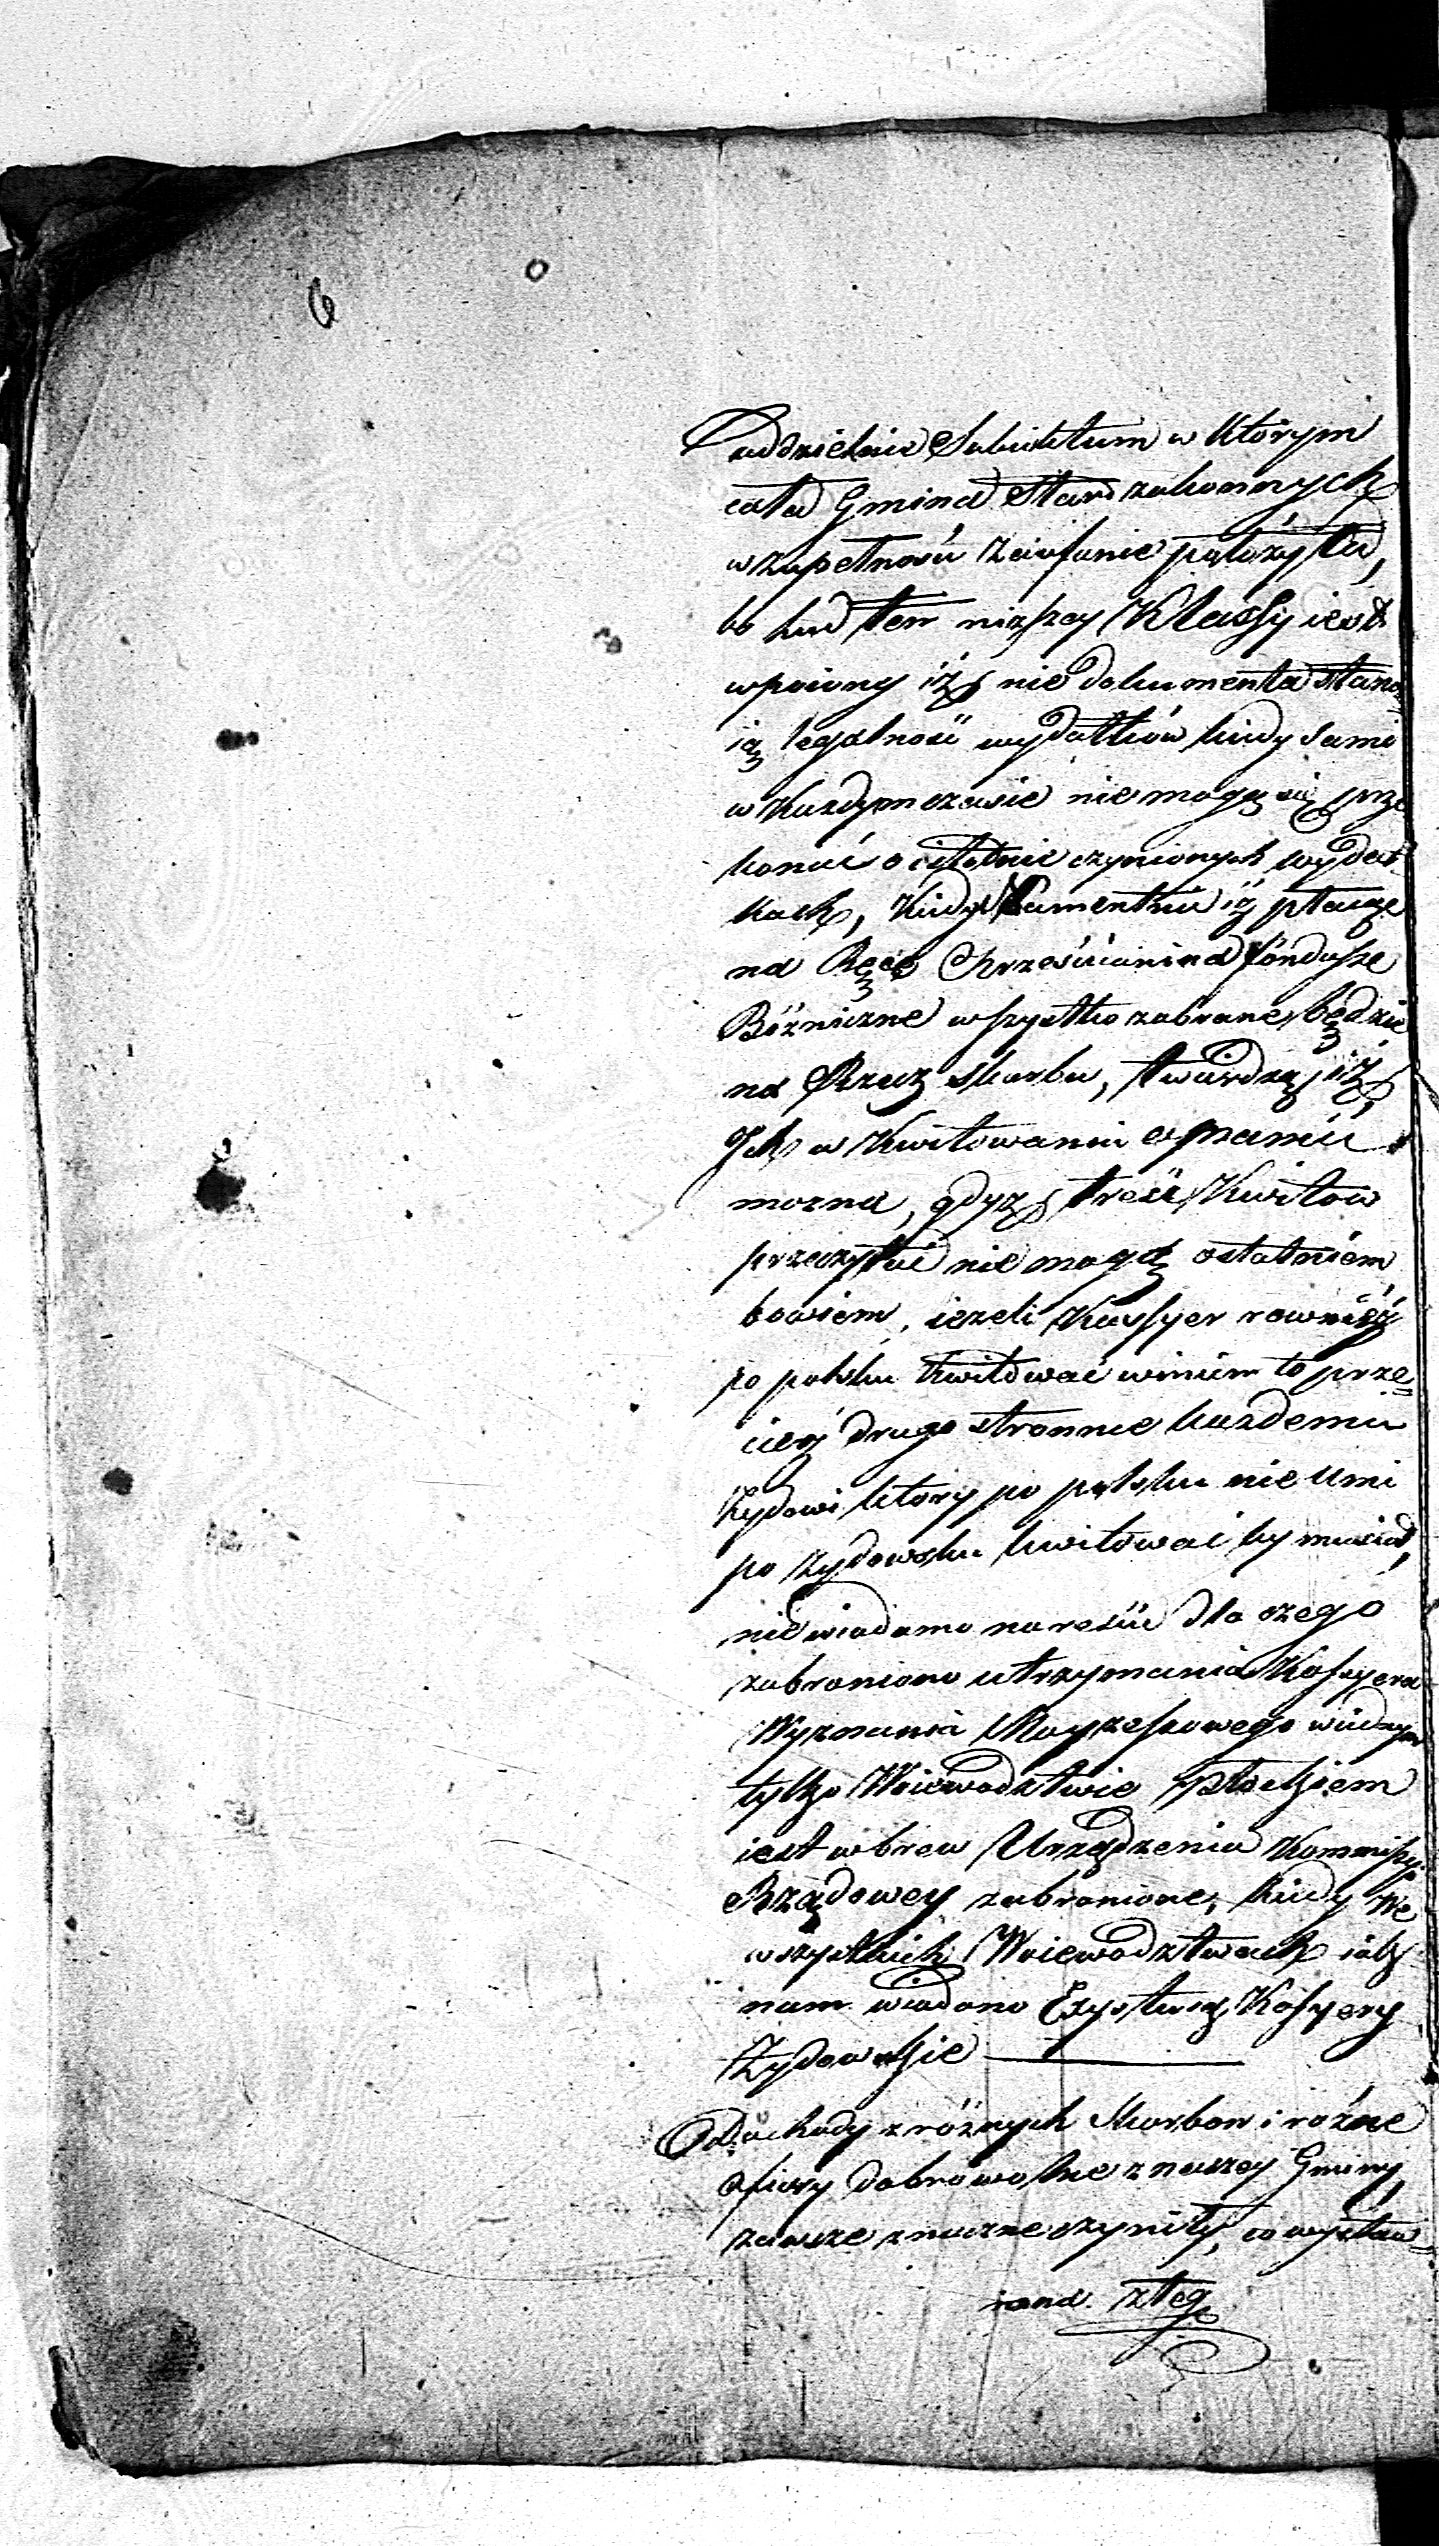 6
oddzielnie Subiektum w którym
cała Gmina Starozakonnych
w zupełności zaufanie położyła,
bo lud ten niższey Klassy iest
wpoiony iż nie dokumenta stano=
ią legalność wydatków kiedy sami
w każdym czasie nie mogą się prze
konać o istotnie czynionych wydat
kach, kiedy iż płacąc
na Ręce Chrześcianina fondusze
Bóżniczne wszystko zabrane będzie
na Rzecz Skarbu, twierdzą iż
Ich w Kwitowaniu
można, gdyż treść Kwitow
przeczytać nie mogą ostatniem
bowiem, ieżeli Kassyer rownież
po polsku kwitować winien to prze=
cież drugo stronnie każdemu
Żydowi ktory po polsku nie umi
po żydowsku kwitować by musiał,
niewiadomo nareście dla czego
zabroniono utrzymania Kassyera
Wyznania Moyżeszowego w iednym
tylko Woiewodztwie Płockiem
iest wbrew Urządzenia Kommissyi
Rządowey zabronione, kiedy we
wszystkich Woiewodztwach iak
nam wiadono Exystuią Kassyery
Żydowskie
Dochody z różnych Skarbon i rożne
ofiary dobrowolne z naszey Gminy,
zawsze znaczne czyniły, co wystaw=
iona z teg